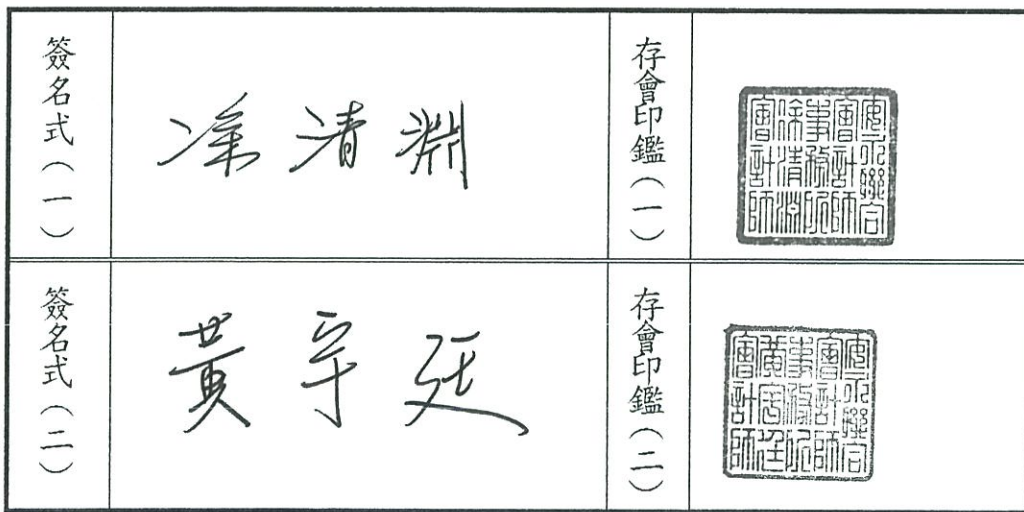 簽名式(一)
涂清淵
存會印鑑(一)
安永聯合會計師事務所涂清淵會計師
簽名式(二)
黃宇廷
存會印鑑(二)
安永聯合會計師事務所黃宇廷會計師